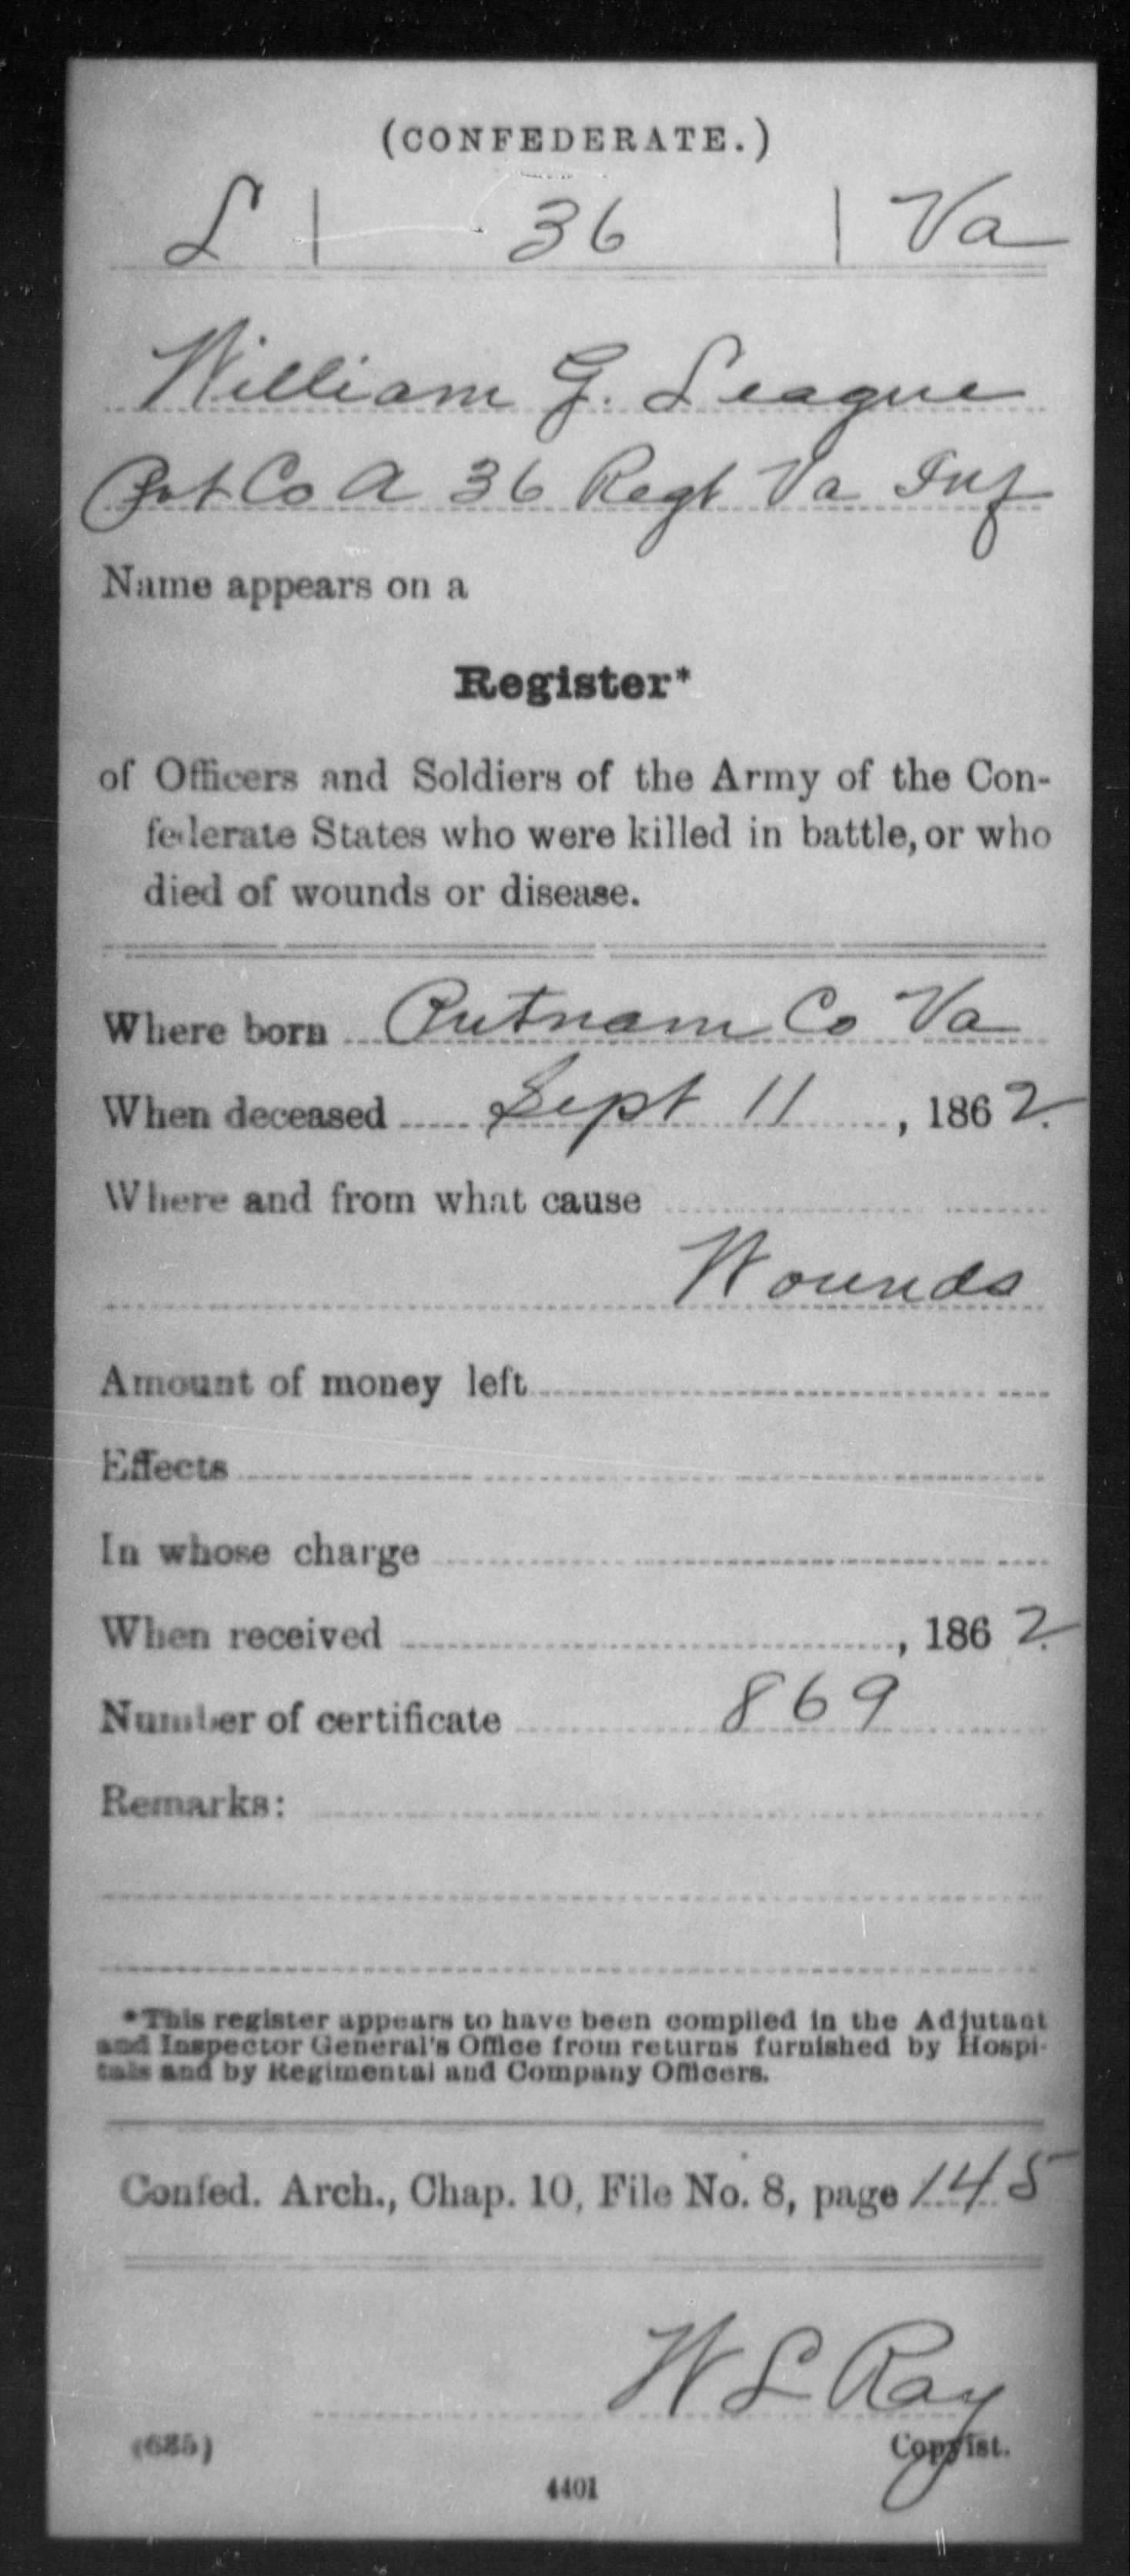 (CONFEDERATE.)
L | 36 | Va
William G. League
Pvt Co A 36 Regt Va Inf
Name appears on a
Register*
of Officers and Soldiers of the Army of the Con-
federate States who were killed in battle, or who
died of wounds or disease.
Where born Putnam Co Va
When deceased Sept 11, 1862.
Where and from what cause
Wounds
Amount of money left
Effects
In whose charge
When received , 1862.
Number of certificate 869
Remarks:
*This register appears to have been compiled in the Adjutant
and Inspector General's Office from returns furnished by Hospi-
tals and by Regimental and Company Officers.
Confed. Arch., Chap. 10, File No. 8, page 145
W L Ray
(685) Copyist.
4401